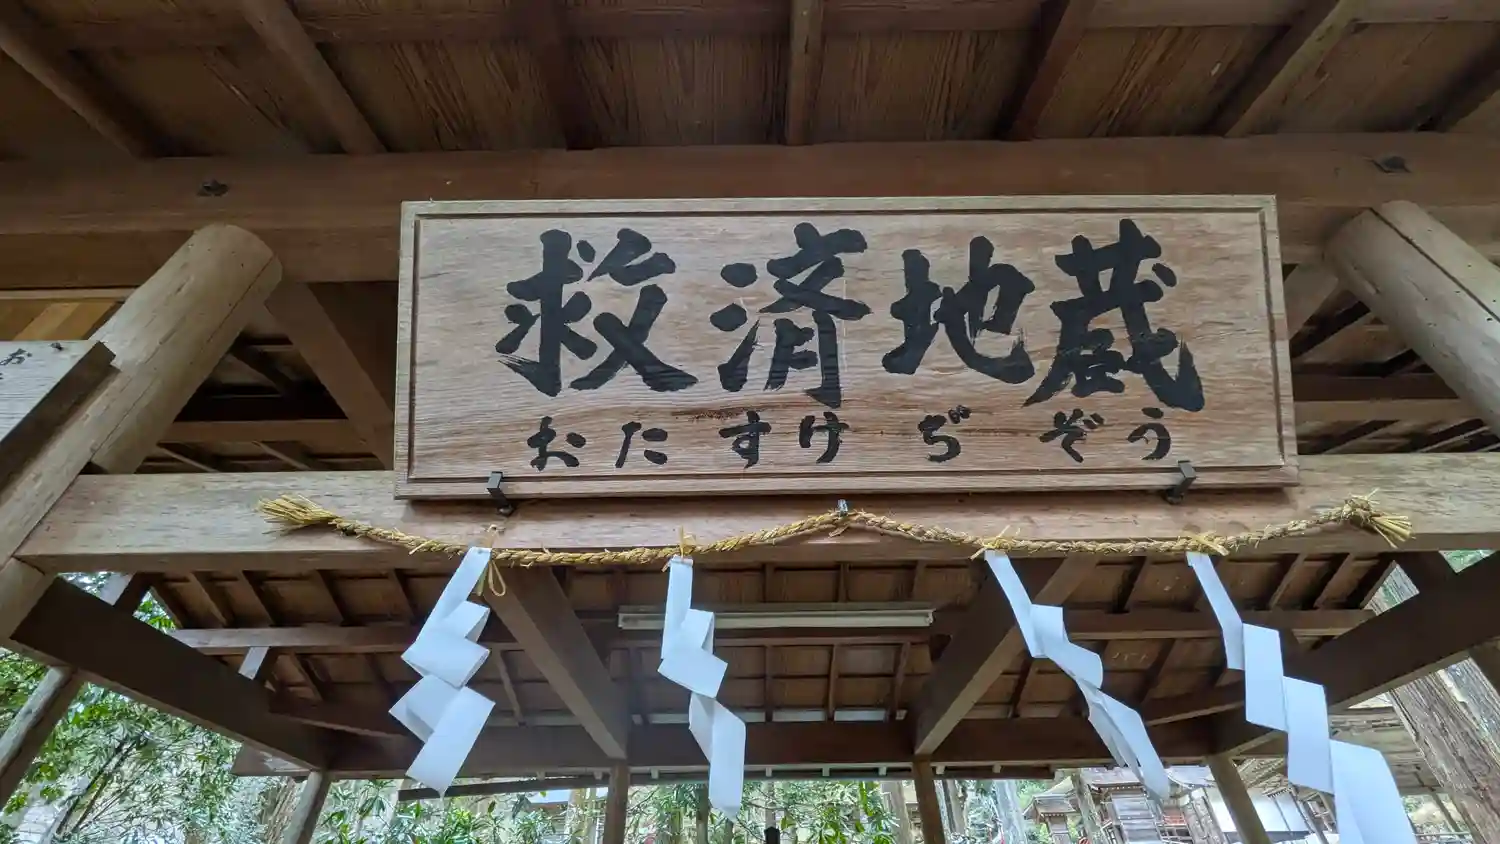 救済地蔵
おたすけぢぞう
お